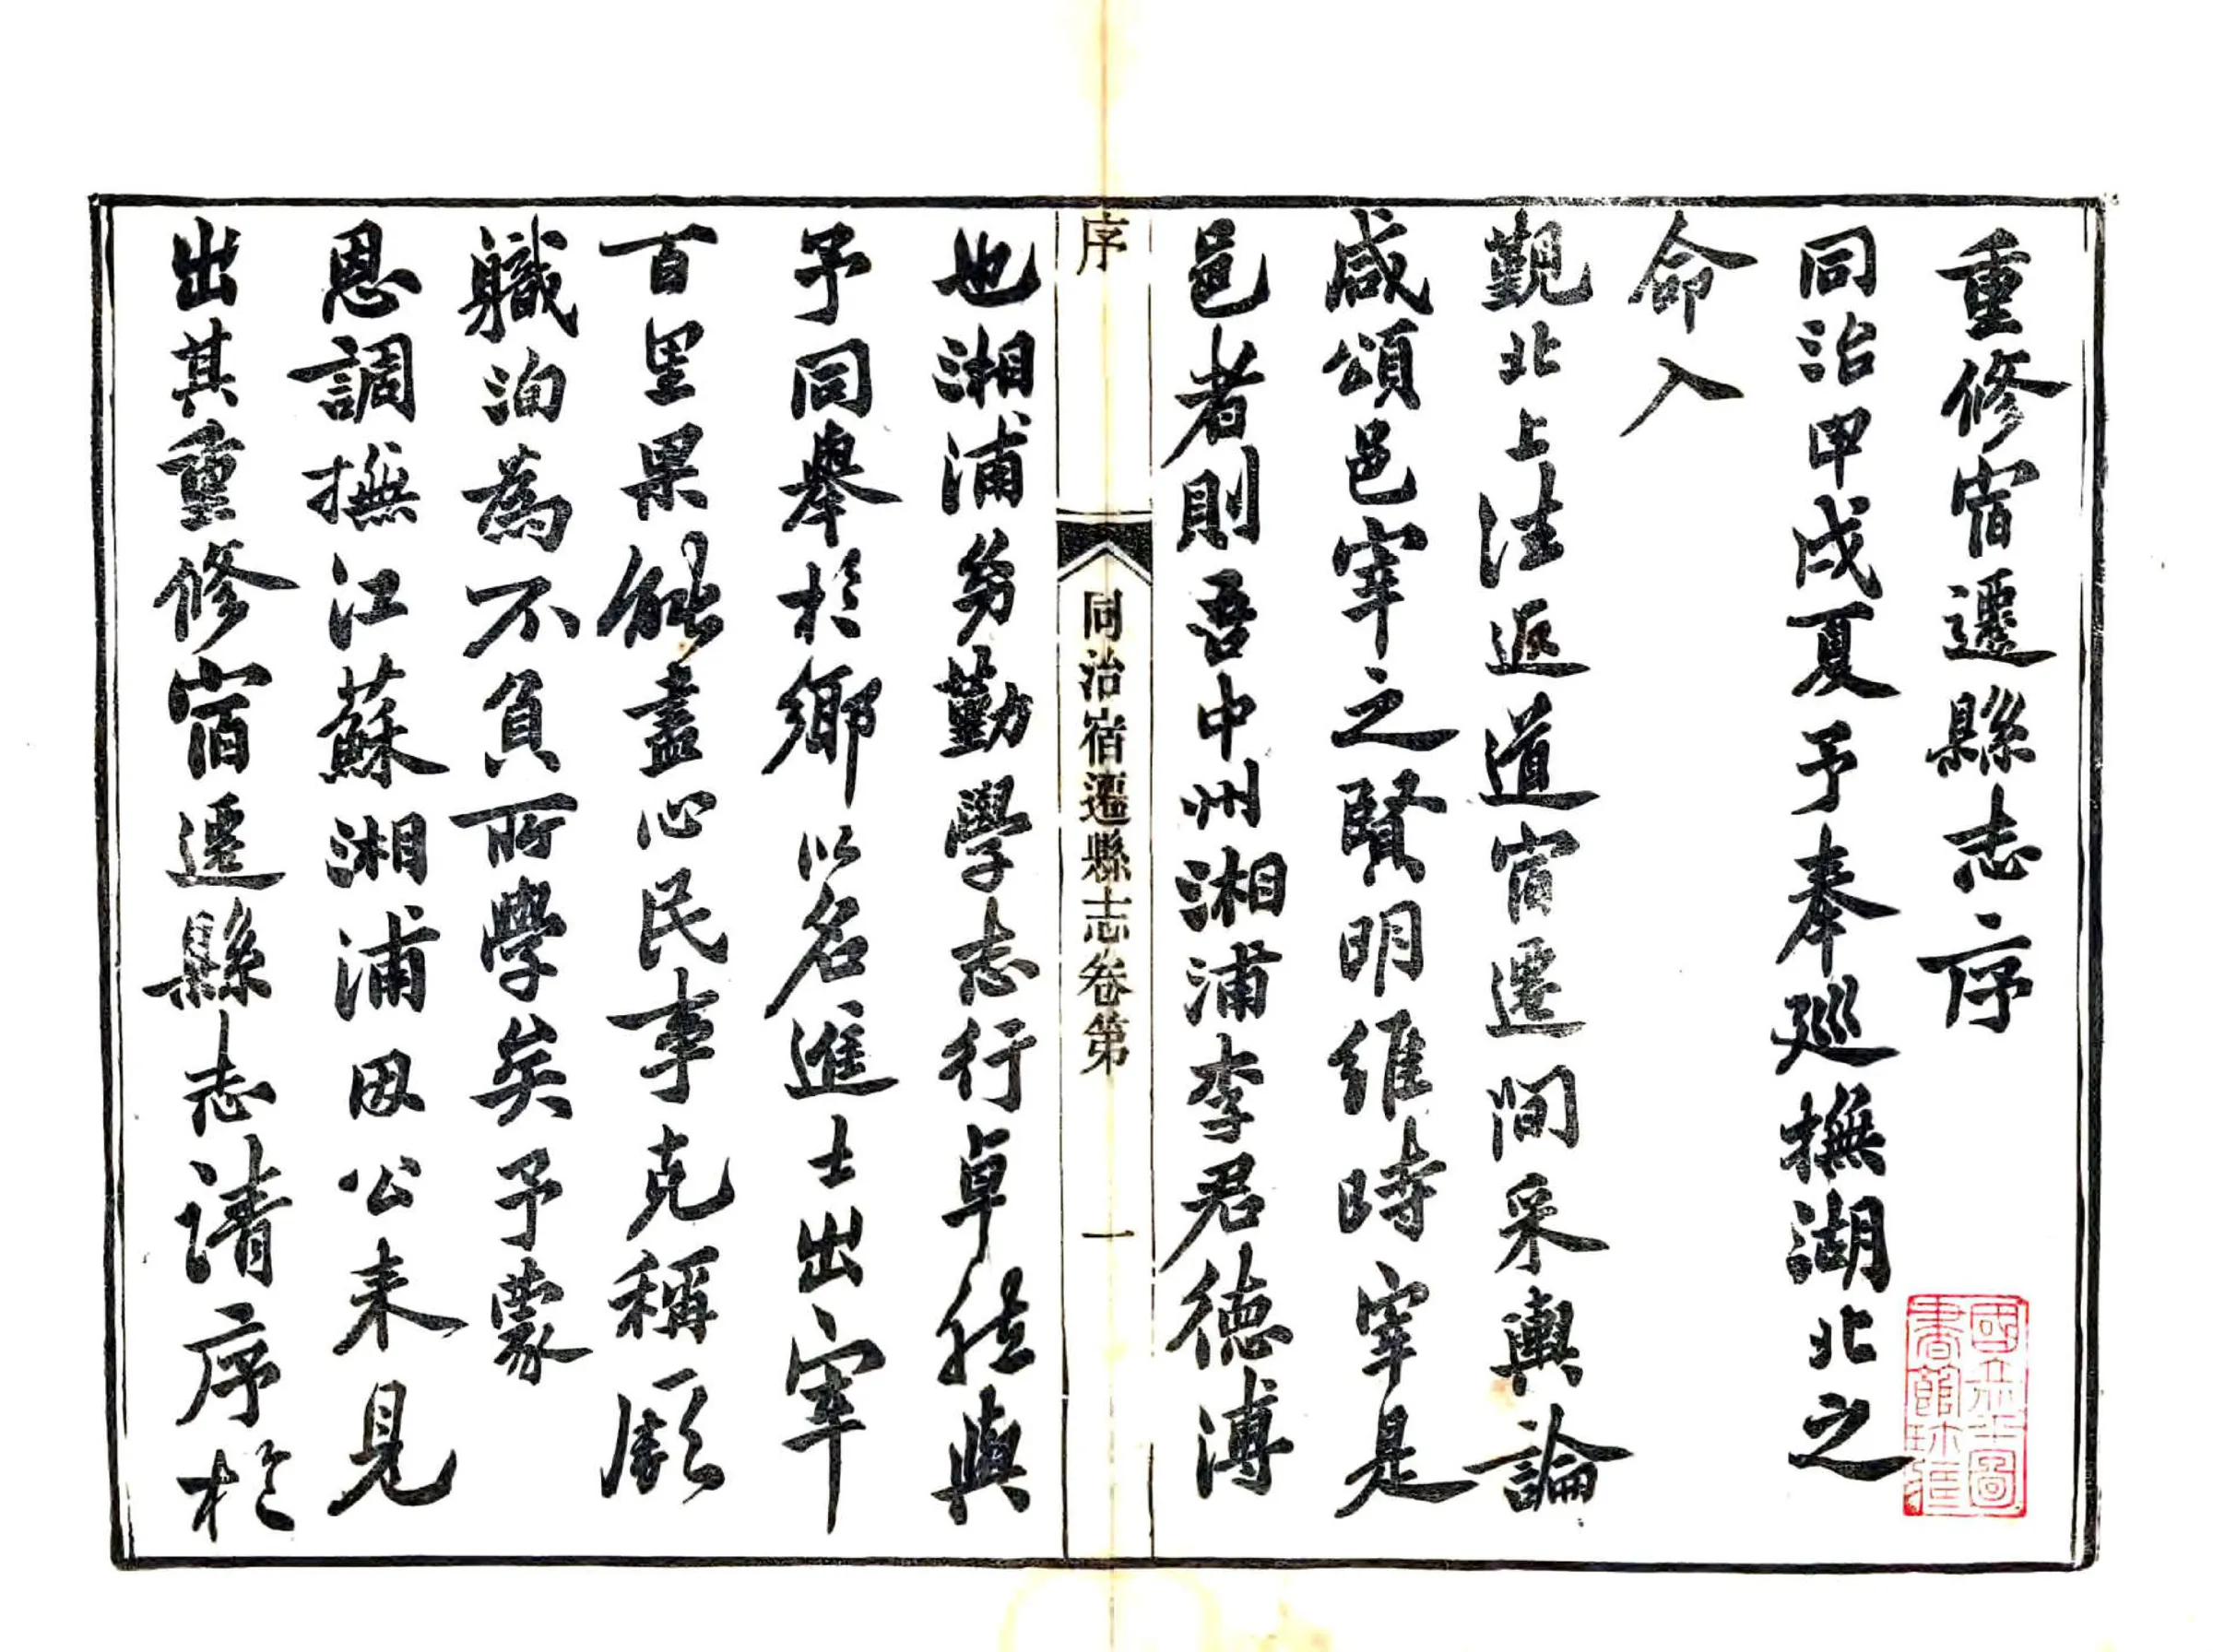 重修宿遷縣志序
同治甲戌夏予奉巡撫湖北之
命入
觐北上往返道宿遷間采輿論
咸頌邑宰之賢明維時宰是
邑者則吾中州湘浦李君德溥
序
同治宿遷縣志卷第
一
也湘浦劬勤學志行卓然與
予同舉於鄉以名進士出宰
百里果能盡心民事克稱厥
職洵為不負所學矣予蒙
恩調撫江蘇湘浦因公来見
出其重修宿遷縣志請序於
國立北平圖
書館珍藏